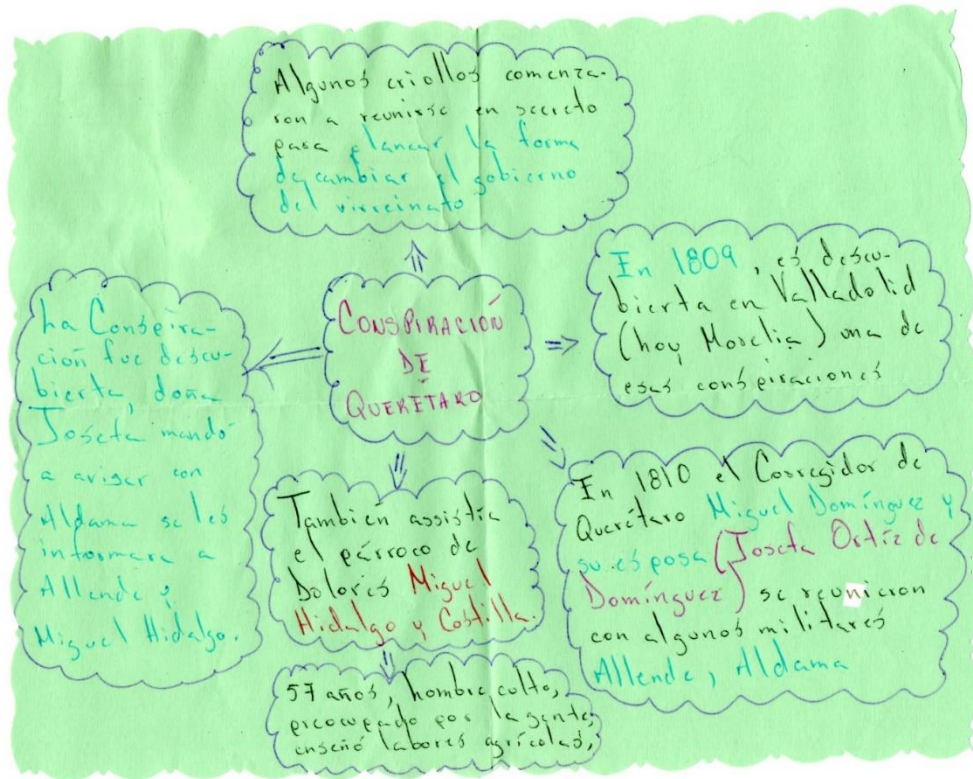 Algunos criollos comenza-
ron a reunirse en secreto
para planear la forma
de cambiar el gobierno
del virreinato
CONSPIRACIÓN
DE
QUERÉTARO
En 1809, es descu-
bierta en Valladolid
(hoy Morelia) una de
esas conspiraciones
En 1810 el Corregidor de
Querétaro Miguel Domínguez y
su esposa (Josefa Ortíz de
Domínguez) se reunieron
con algunos militares
Allende, Aldama
También assistía
el párroco de
Dolores Miguel
Hidalgo y Costilla.
57 años, hombre culto,
preocupado por la gente,
enseñó labores agrícolas,
La Conspira-
ción fue descu-
bierta, doña
Josefa mandó
a avisar con
Aldama se les
informara a
Allende y
Miguel Hidalgo.